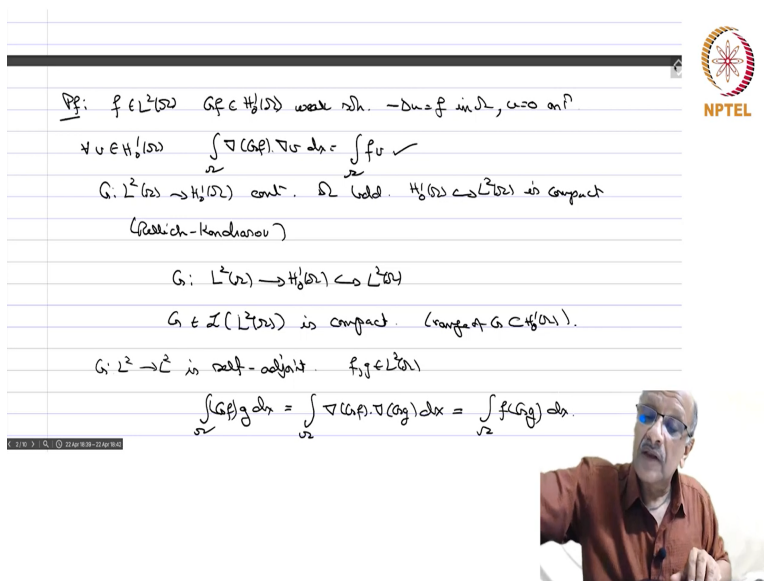 Pf: f ∈ L²(Ω) Gf ∈ H₀¹(Ω) weak soln. -Δu = f in Ω, u=0 on Γ
∀ v ∈ H₀¹(Ω) ∫_Ω ∇(Gf).∇v dx = ∫_Ω fv ✓
G: L²(Ω) → H₀¹(Ω) cont. Ω bdd. H₀¹(Ω) ↪ L²(Ω) is compact
(Rellich-Kondrasov)
G: L²(Ω) → H₀¹(Ω) ↪ L²(Ω)
G ∈ L(L²(Ω)) is compact. (range of G ⊂ H₀¹(Ω)).
G: L² → L² is self-adjoint. f,g ∈ L²(Ω)
∫_Ω (Gf) g dx = ∫_Ω ∇(Gf).∇(Gg) dx = ∫_Ω f(Gg) dx.
2/10 22 Apr 18:39 – 22 Apr 18:42
NPTEL